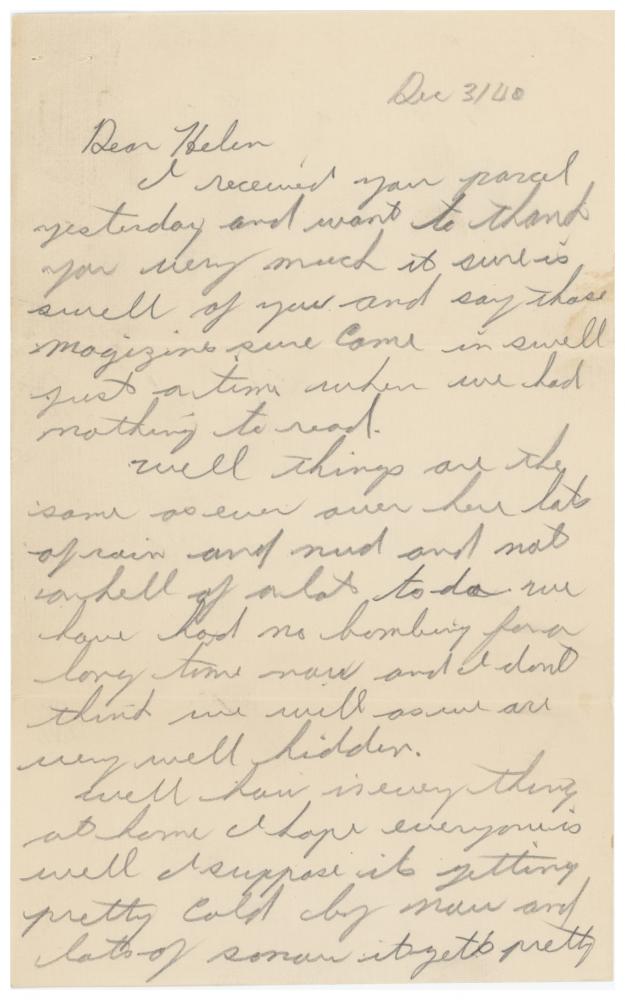 Dec 3/40
Dear Helen
I received your parcel
yesterday and want to thank
you very much it sure is
swell of you and say those
magizines sure come in swell
just a time when we had
nothing to read.
Well things are the
same as ever over here lots
of rain and mud and not
a hell of a lot to do. we
have had no bombing for a
long time now and I dont
think we will as we are
very well hidden.
Well how is every thing
at home I hope everyone is
well I suppose its getting
pretty cold by now and
lots of snow it gets pretty